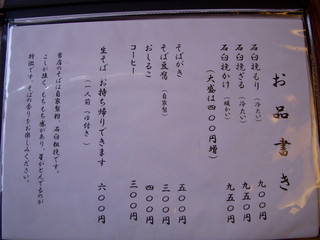 お品書き
石臼挽もり（冷たい）　九〇〇円
石臼挽ざる（冷たい）　九五〇円
石臼挽かけ（暖かい）　九五〇円
（大盛は四〇〇円増）
そばがき　五〇〇円
そば豆腐（自家製）　三〇〇円
おしるこ　四〇〇円
コーヒー　三〇〇円
生そば　お持ち帰りできます　六〇〇円
（一人前　つゆ付き）
当店のそばは自家製粉、石臼粗挽です。
こしが強く、もちもち感があり、星がとんでるのが
特徴です。そばの香りをお楽しみください。